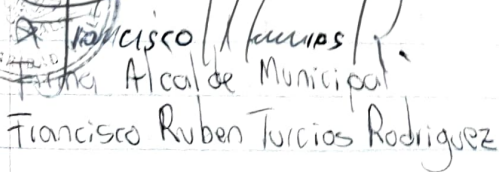 Francisco Turcios R.
Firma Alcalde Municipal
Francisco Ruben Turcios Rodriguez